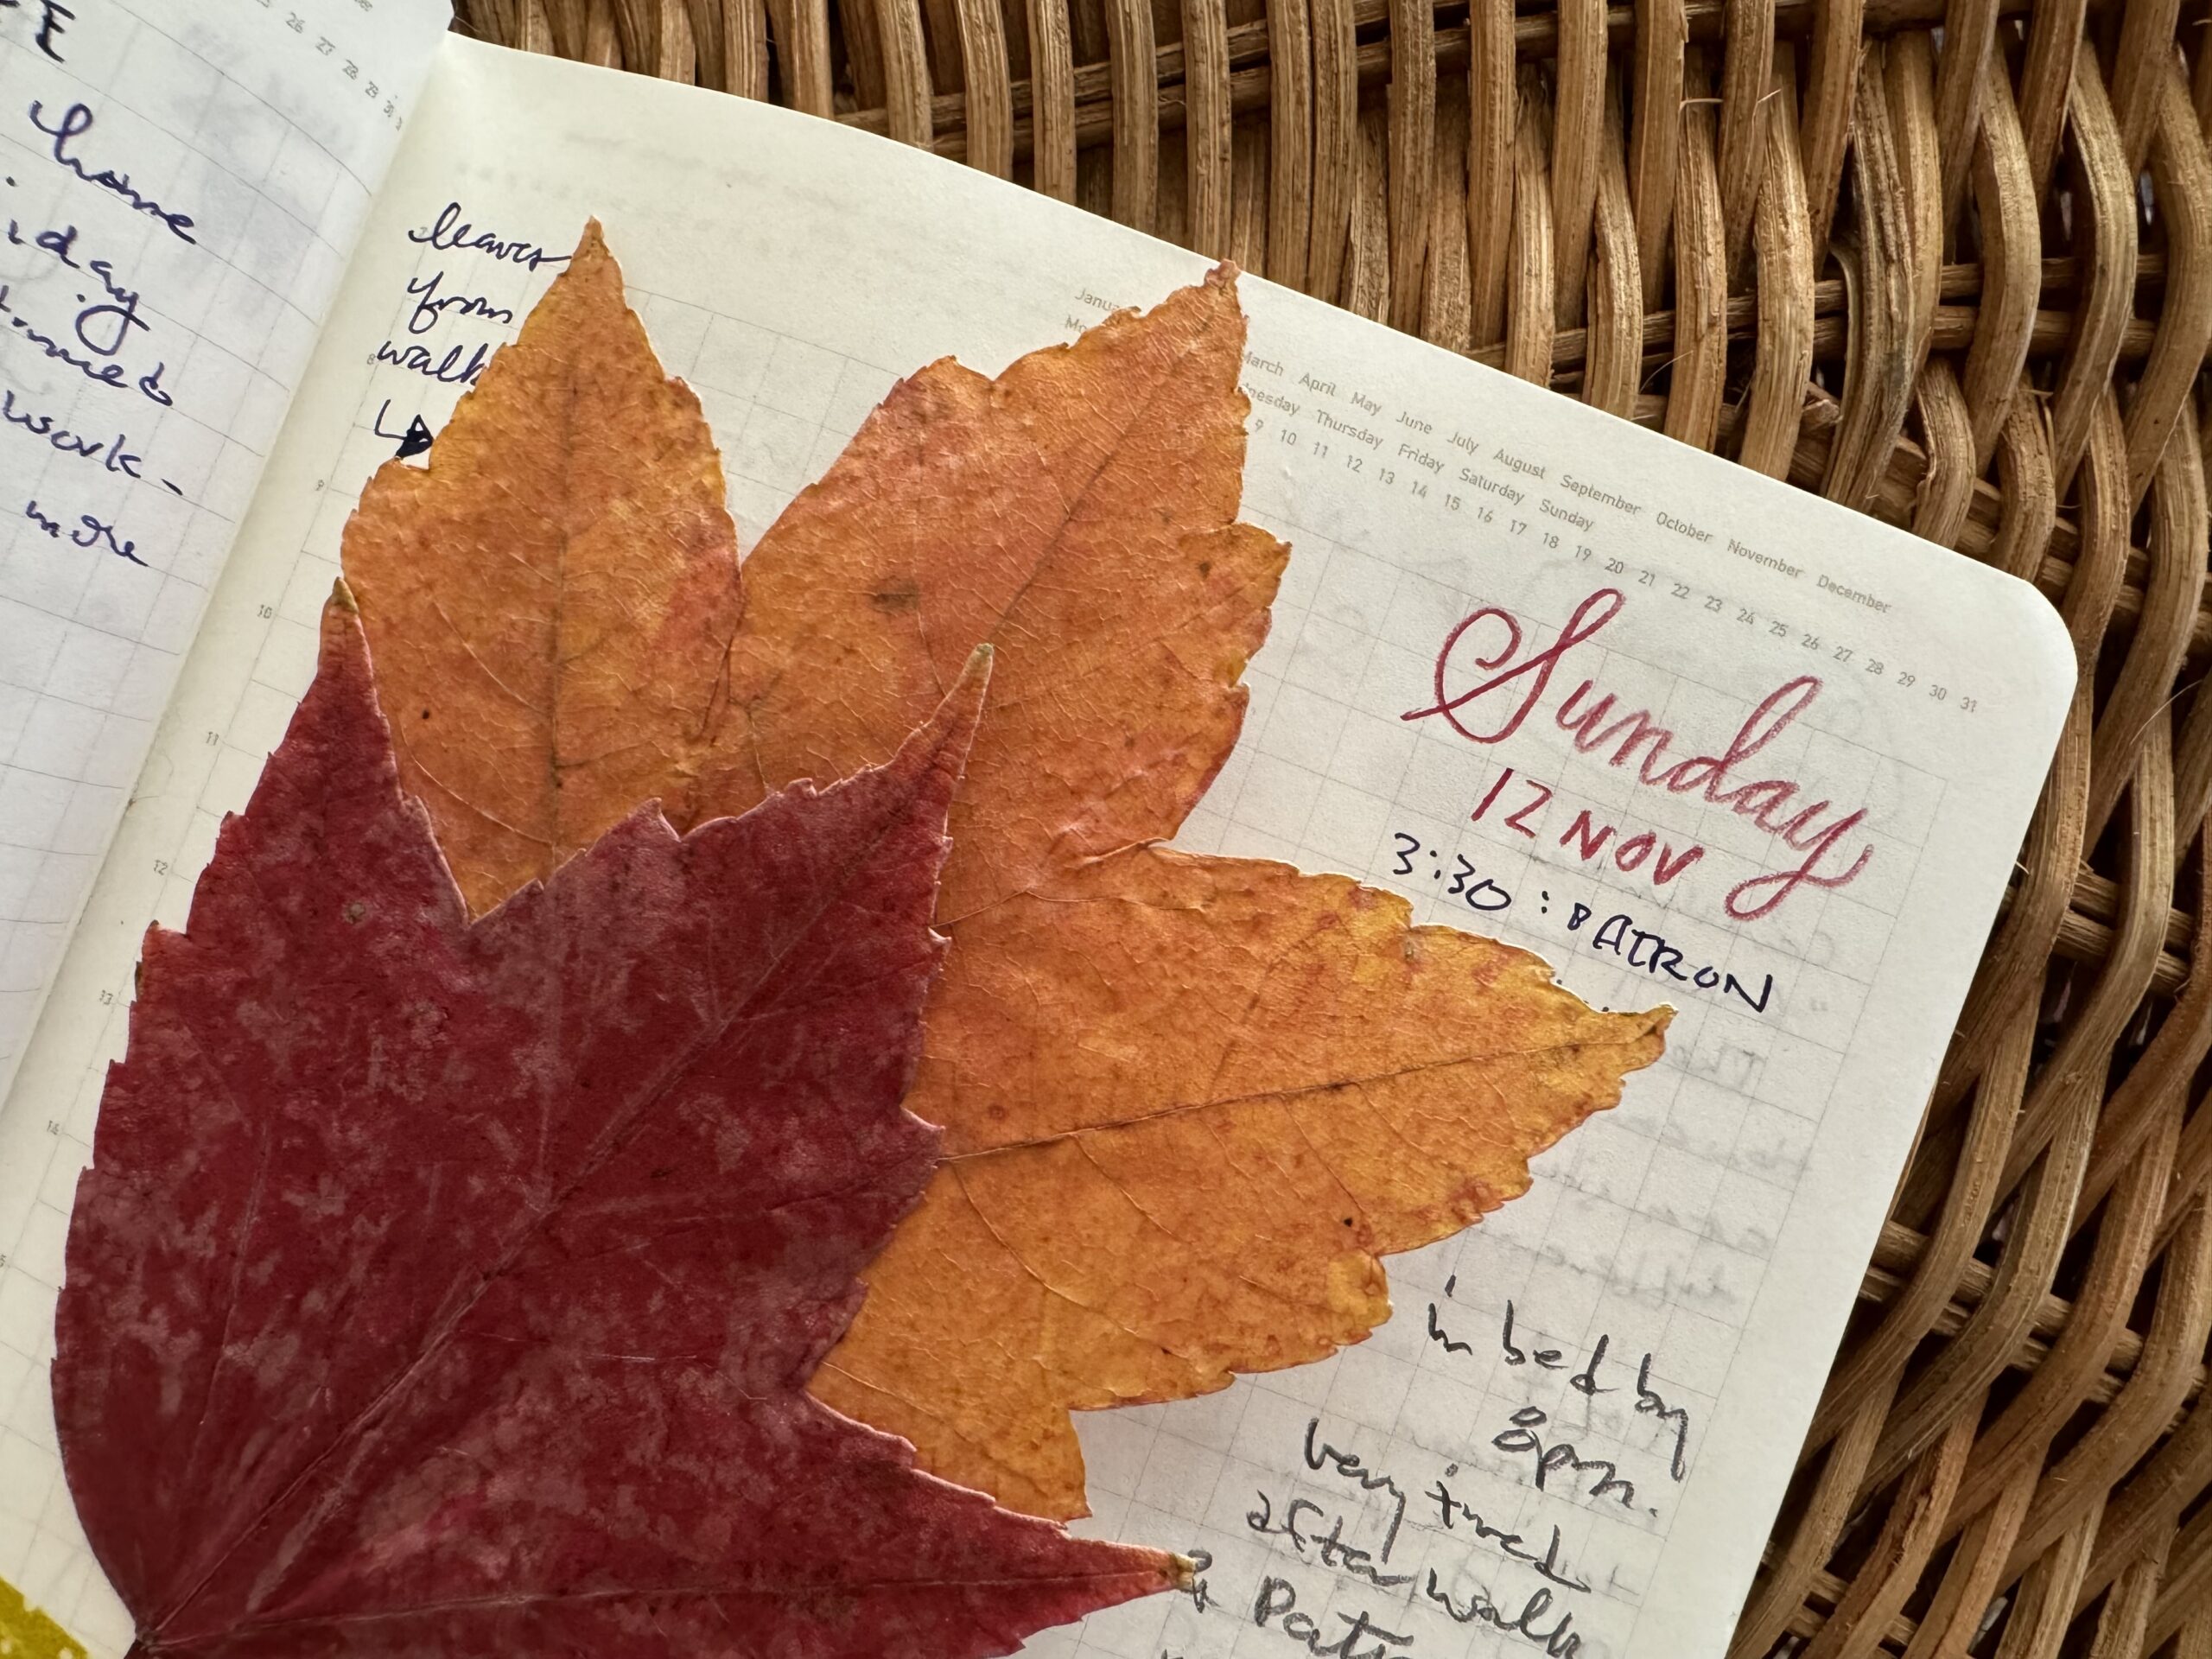 26 27 28 29 30 3
home
iday
work-
more
leaves
from
walk
8
9
10
11
12
13
14
March April May June July August September October November December
Thursday Friday Saturday Sunday
9 10 11 12 13 14 15 16 17 18 19 20 21 22 23 24 25 26 27 28 29 30 31
Sunday
12 NOV
3:30 :
in bed by
8pm.
very tired
after walk
&